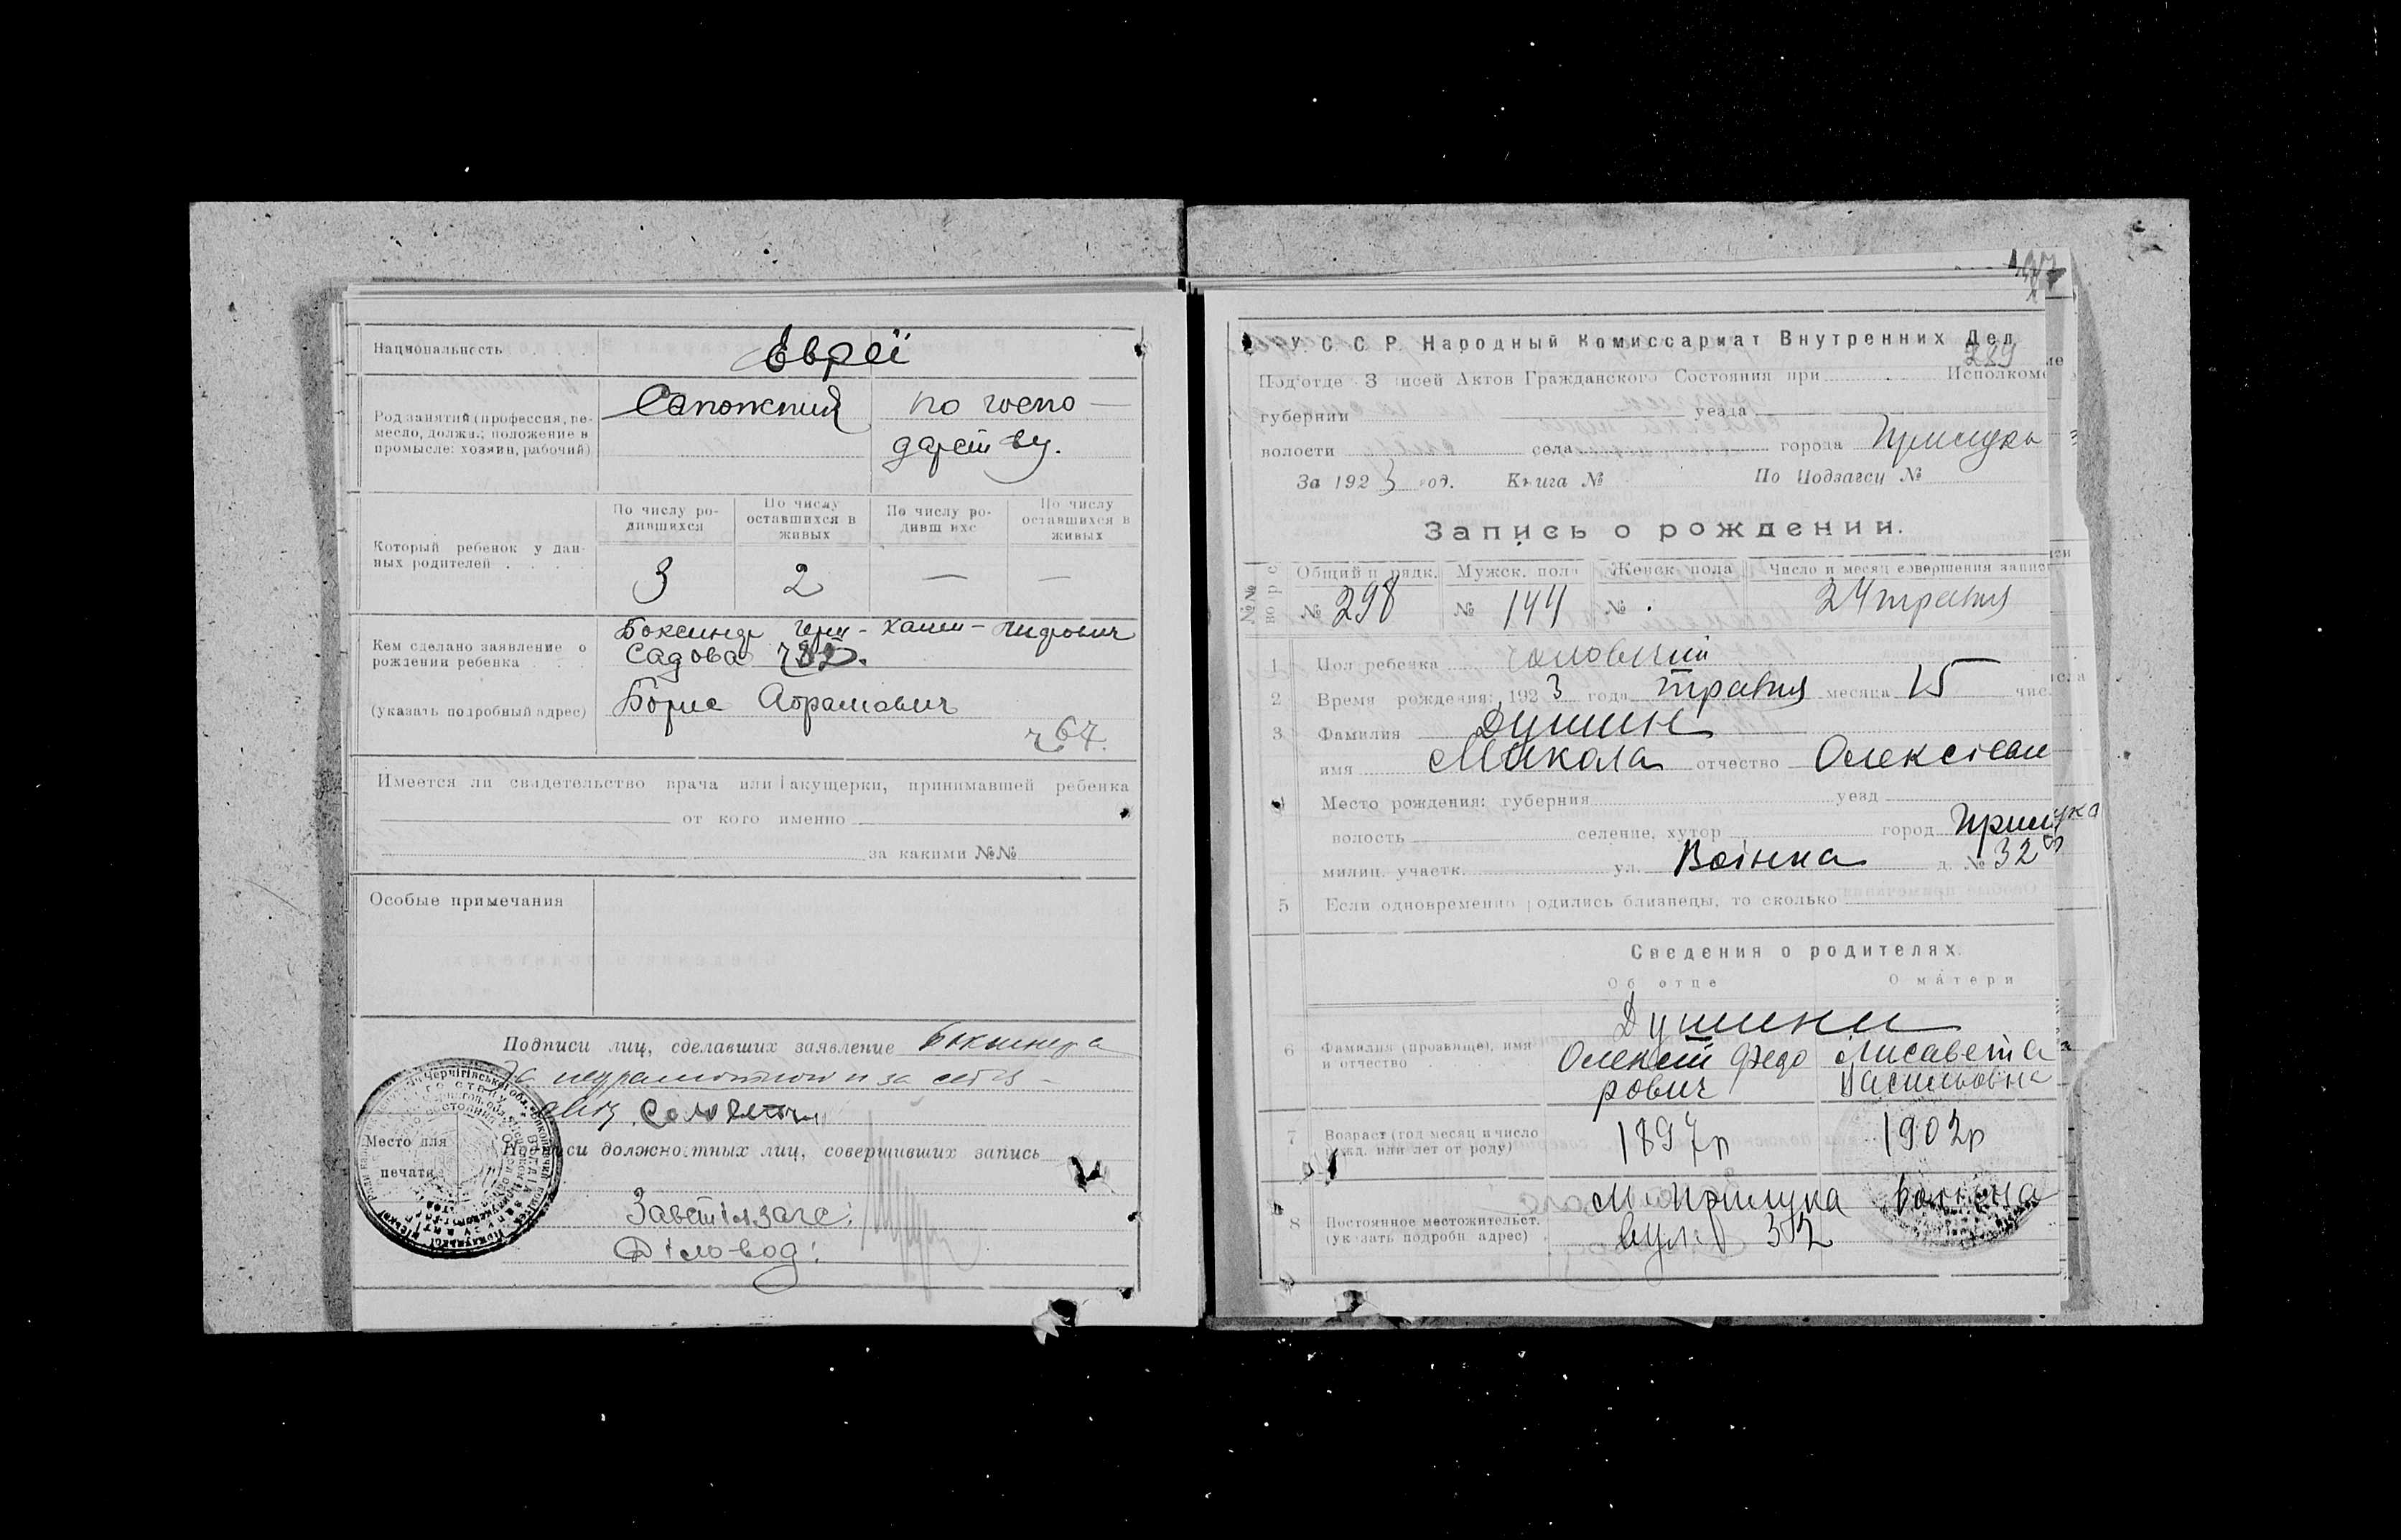 Национальность
Евреї
Род занятий (профессия, ре-
месло, должн.; положение в
промысле: хозяин, рабочий)
по госпо-
дарству.
Который ребенок у дан-
ных родителей . . . .
По числу ро-
дившихся
По числу
оставшихся в
живых
По числу ро-
дивш ихс
По числу
оставшихся в
живых
3 2 — —
Кем сделано заявление о
рождении ребенка . . .
(указать подробный адрес)
Садова
Борис Абрамович
ч 64.
Имеется ли свидетельство врача или акушерки, принимавшей ребенка
от кого именно
за какими №№
Особые примечания
Подписи лиц, сделавших заявление
Место для
печати
Подписи должностных лиц, совершивших запись
Діловод:
У. С. С. Р. Народный Комиссариат Внутренних Дел
289
Под'отде З исей Актов Гражданского Состояния при Исполкоме
губернии уезда
волости села города Прилука
За 1923 год. Книга № По Подзагсу №
Запись о рождении.
Общий п рядк. Мужск. пола Женск. пола Число и месяц совершения записи
№ 298 № 144 № 24 травня
1 Пол ребенка чоловічий
2 Время рождения: 1923 года травня месяца 15 чис.
3 Фамилия Душин
имя Микола отчество Олексієви
4 Место рождения: губерния уезд
волость селение, хутор город Прилука
милиц. участк. ул. Воінна д. № 32
5 Если одновременно родились близнецы, то сколько
Сведения о родителях.
Об отце О матери
Душини
6 Фамилия (прозвище), имя
и отчество
Олексій Федо
рович
Лисавета
Васильовна
7 Возраст (год месяц и число
рожд. или лет от роду)
1897 р 1902 р
8 Постоянное местожительст.
(указать подробн адрес)
м Прилука Воінна
вул. 32